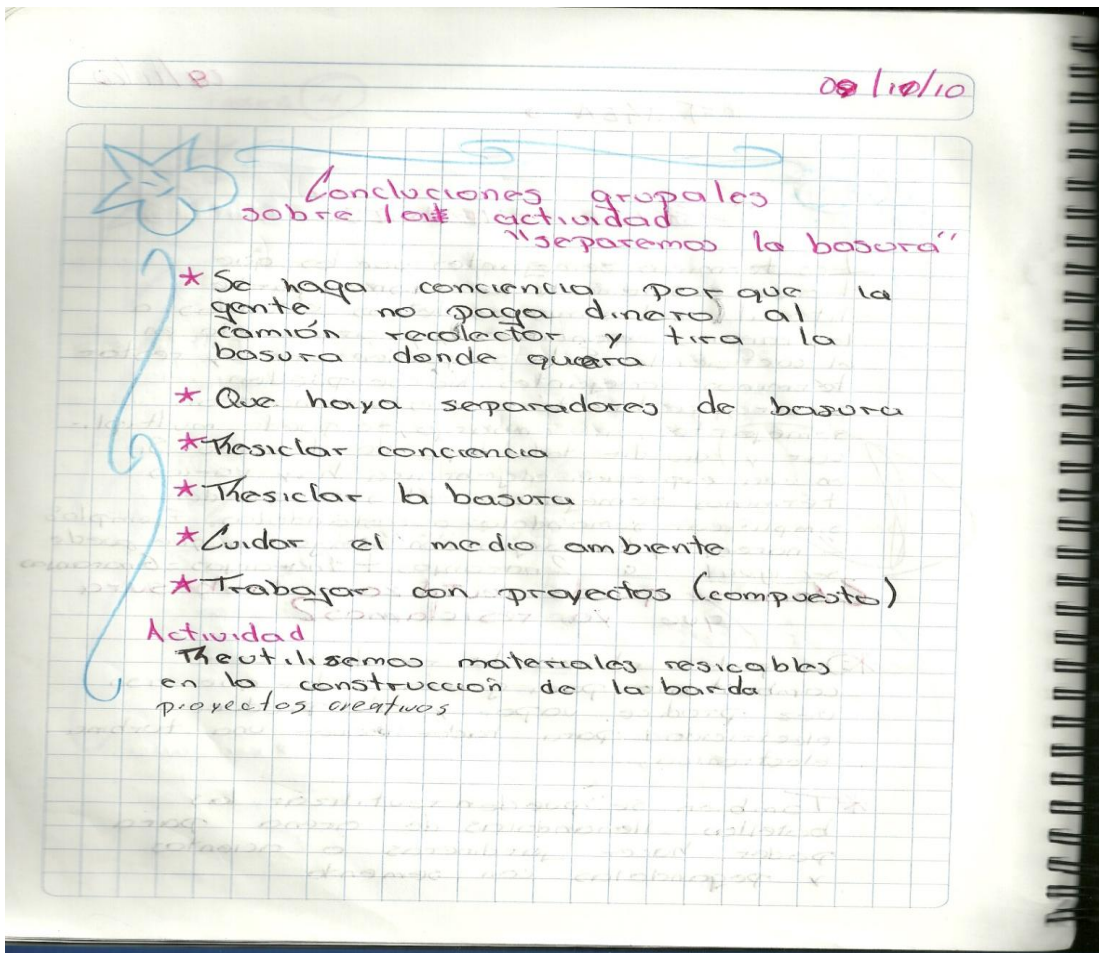 09/10/10
Concluciones grupales
sobre la actividad
"separemos la basura"
* Se haga conciencia porque la
gente no paga dinero al
camión recolector y tira la
basura donde quiera
* Que haya separadores de basura
* Resiclar conciencia
* Resiclar la basura
* Cuidar el medio ambiente
* Trabajar con proyectos (compuesto)
Actividad
Reutilisemos materiales resicables
en la construcción de la barda
proyectos creativos